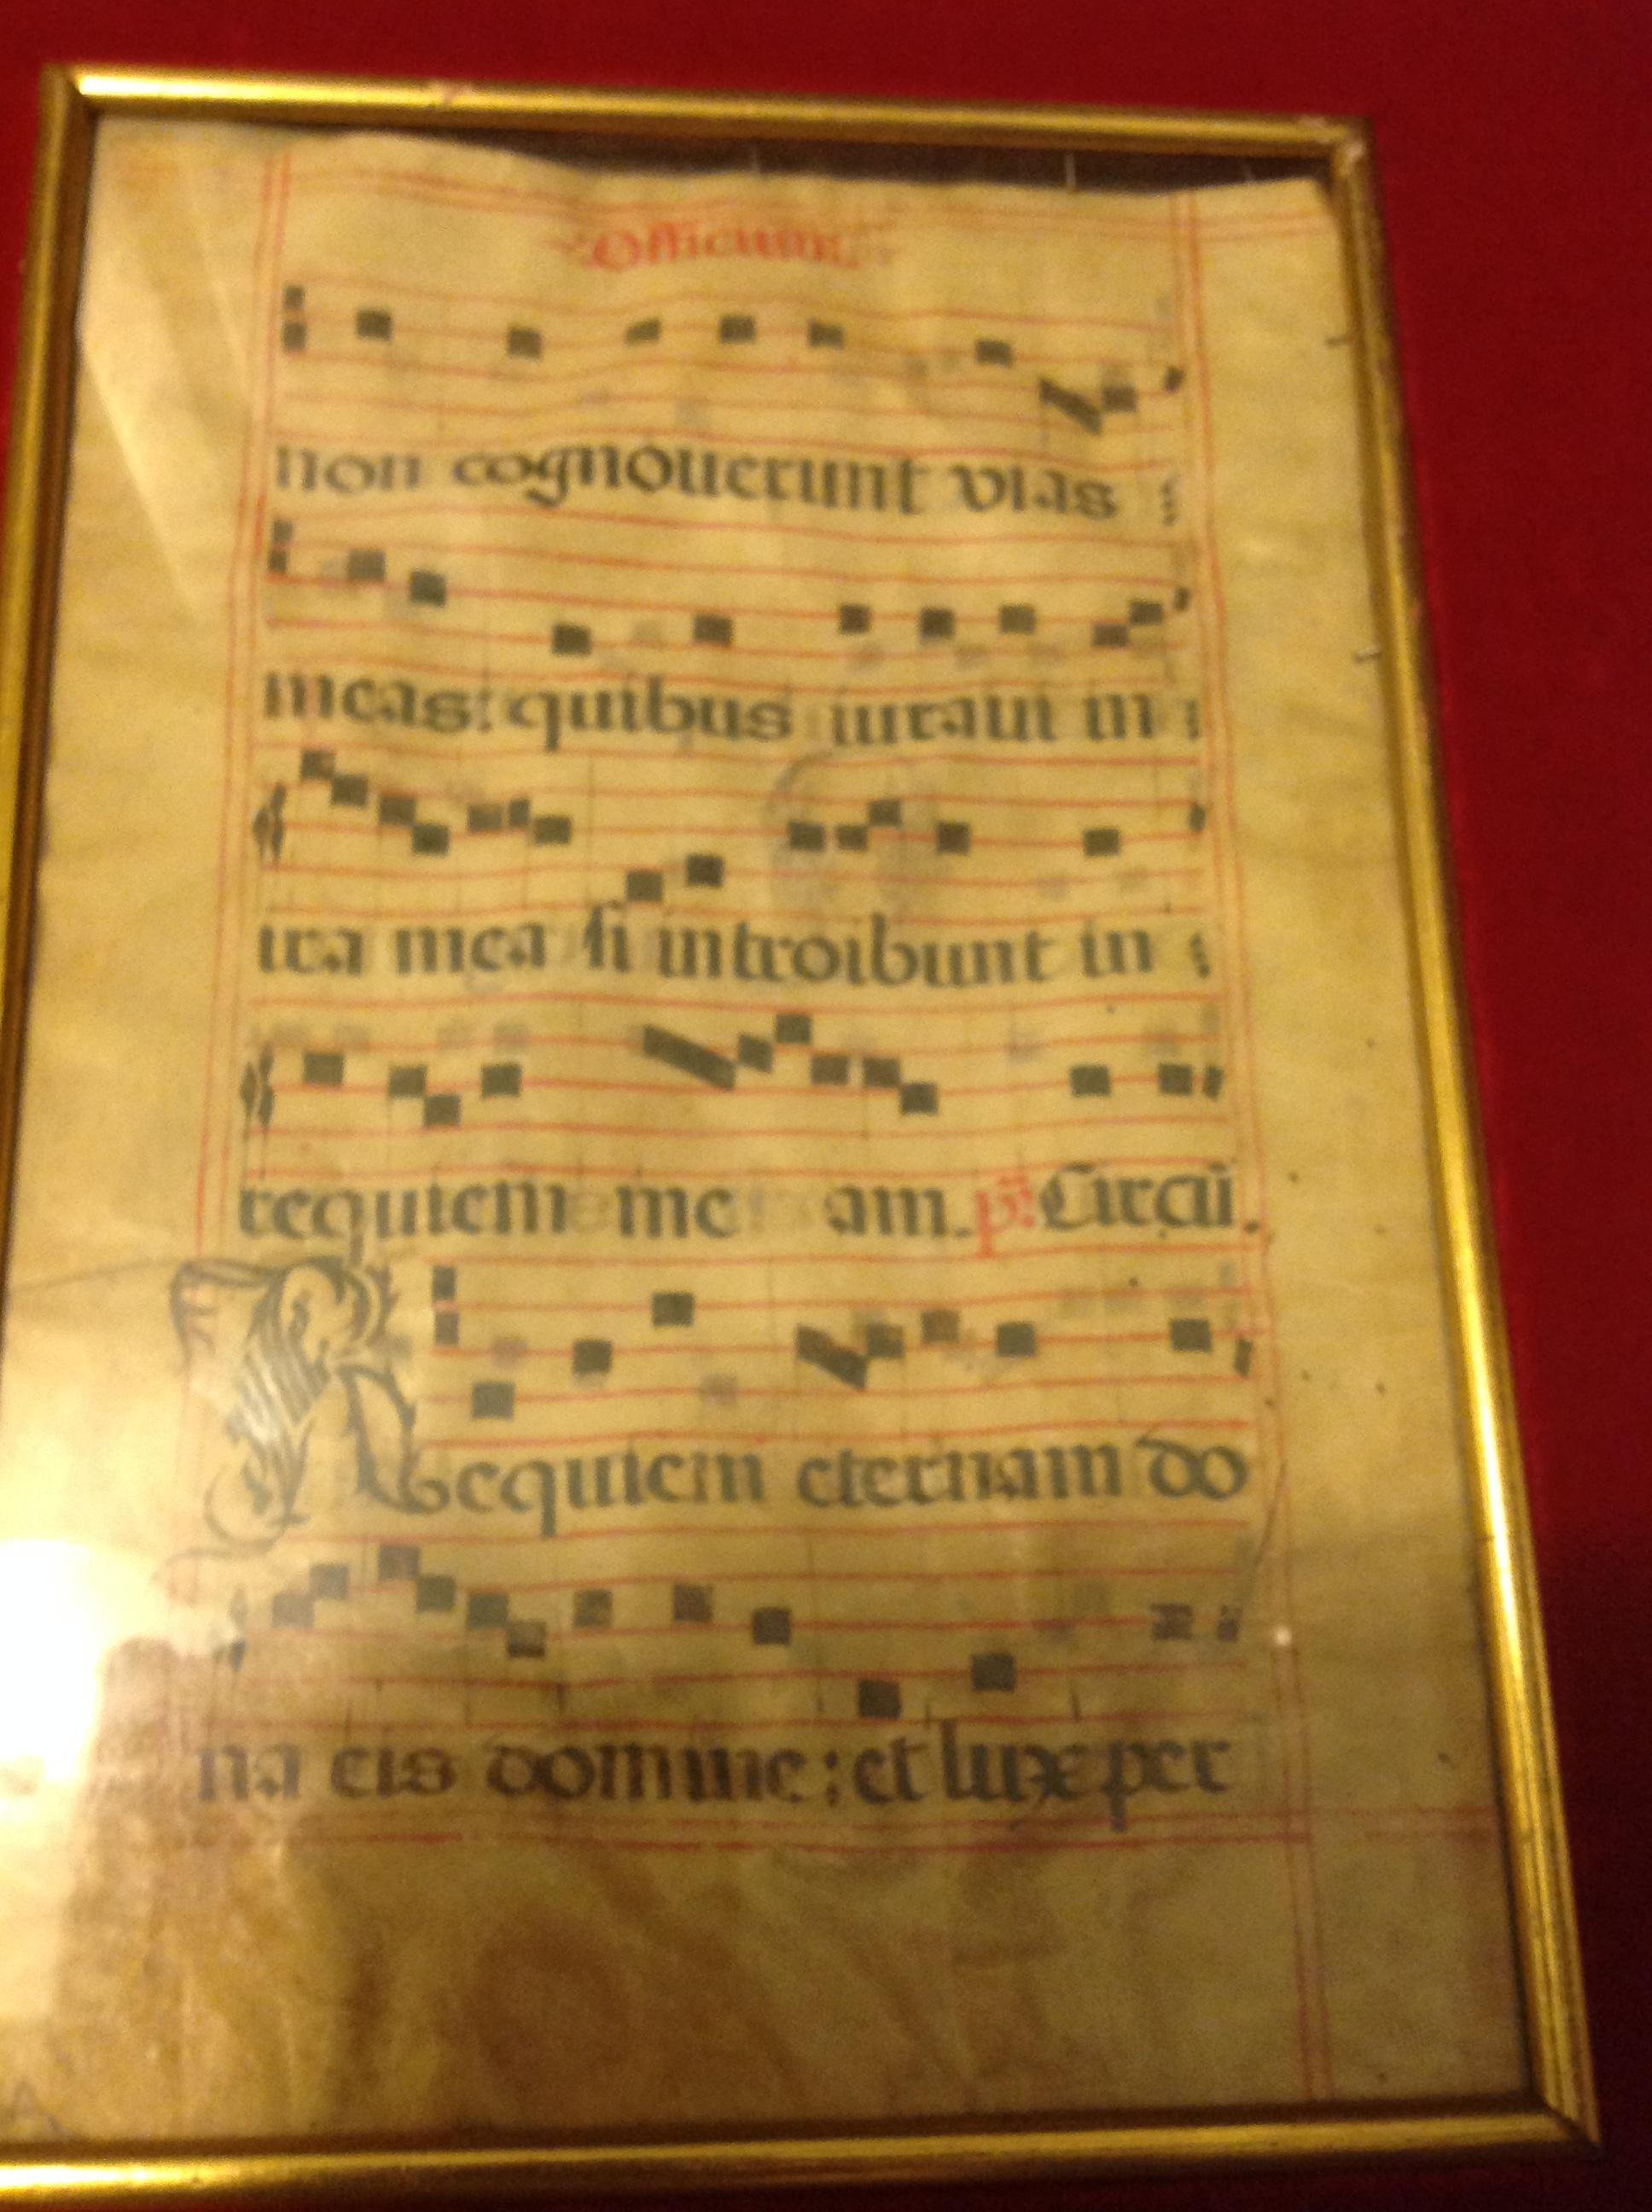 Officium
non cognouerunt vias
meas: quibus iuraui in
ira mea si introibunt in
requiem me am. p̄s. Circū.
Requiem eternam do
na eis domine: et lux per